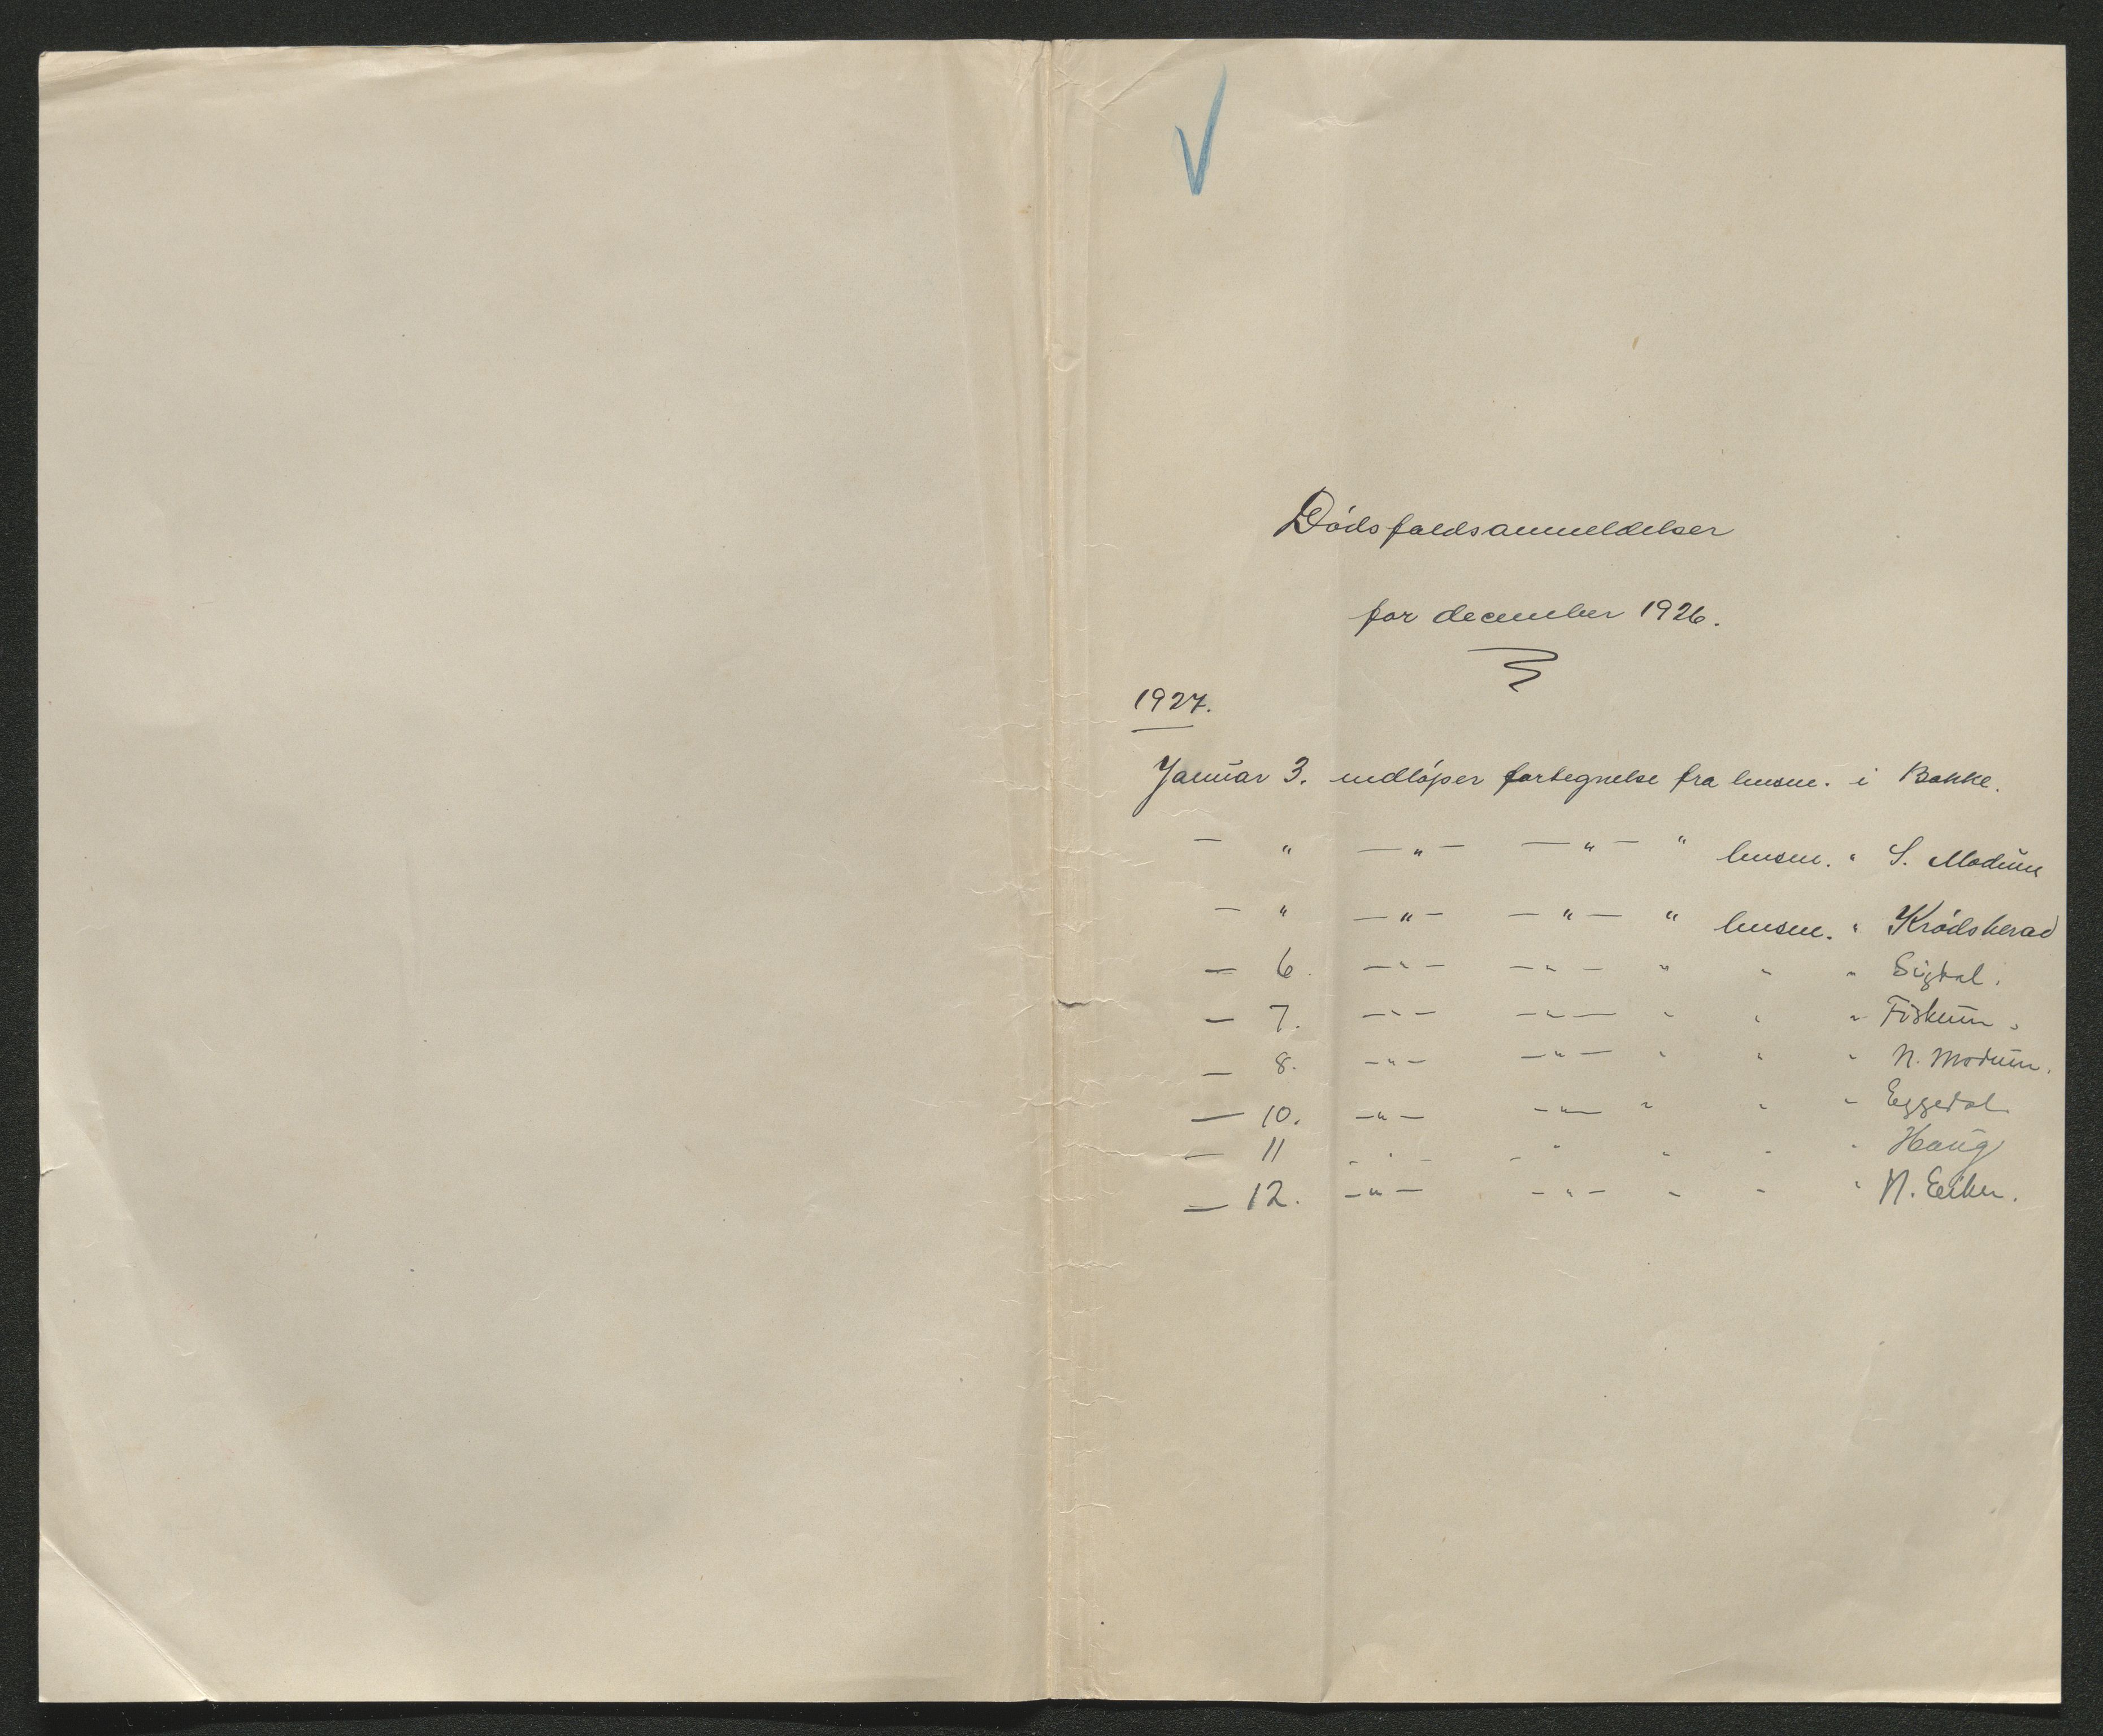 Dødsfaldsanmeldelser
for december 1926.
1927.
Januar 3. indløper fortegnelse fra lensm. i Bakke.
— " —"— —"— " lensm. " S. Modum
— " —"— —"— " lensm. " Krødsherad
— 6. —"— —"— " " " Sigdal.
— 7. —"— —"— " " " Fiskum.
— 8. —"— —"— " " " N. Modum.
— 10. —"— —"— " " " Eggedal
— 11 —"— —"— " " " Haug
— 12. —"— —"— " " " N. Eiker.